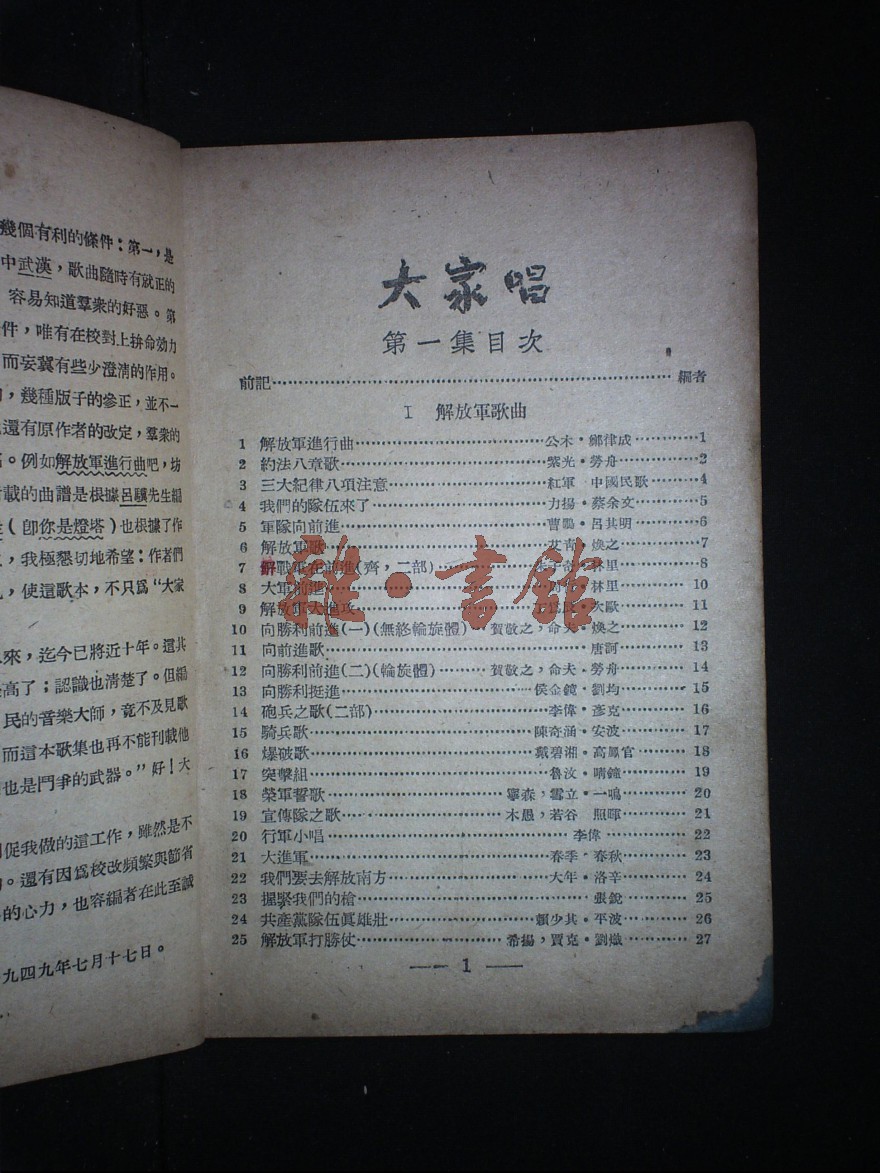 幾個有利的條件：第一，是
中武漢，歌曲隨時有就正的
容易知道羣衆的好惡。第
件，唯有在校對上拚命効力
而妄冀有些少澄清的作用。
，幾種版子的參正，並不一
還有原作者的改定，羣衆的
。例如解放軍進行曲吧，坊
載的曲譜是根據呂驥先生編
（卽你是燈塔）也根據了作
，我極懇切地希望：作者們
，使這歌本，不只爲“大家
來，迄今已將近十年。這其
高了；認識也淸楚了。但編
民的音樂大師，竟不及見歌
而這本歌集也再不能刊載他
也是鬥爭的武器。”好！大
促我做的這工作，雖然是不
。還有因爲校改頻繁與節省
的心力，也容編者在此至誠
九四九年七月十七日。
大家唱
第一集目次
前記…………編者
I 解放軍歌曲
1 解放軍進行曲…………公木・鄭律成…………1
2 約法八章歌…………紫光・勞舟…………2
3 三大紀律八項注意…………紅軍 中國民歌…………4
4 我們的隊伍來了…………力揚・蔡余文…………5
5 軍隊向前進…………曹鵬・呂其明…………6
6 解放軍歌…………艾靑・煥之…………7
7 解戰軍在前進(齊，二部)…………林里…………8
8 大軍前進…………林里…………10
9 解放軍大進攻…………11
10 向勝利前進(一)(無終輪旋體)…………賀敬之，命夫・煥之…………12
11 向前進歌…………唐訶…………13
12 向勝利前進(二)(輪旋體)…………賀敬之，命夫・勞舟…………14
13 向勝利挺進…………侯金鏡・劉均…………15
14 砲兵之歌(二部)…………李偉・彥克…………16
15 騎兵歌…………陳奇涵・安波…………17
16 爆破歌…………戴碧湘・高鳳官…………18
17 突擊組…………魯汶・晴鐘…………19
18 榮軍誓歌…………寧森，雪立・一鳴…………20
19 宣傳隊之歌…………木愚，若谷 照暉…………21
20 行軍小唱…………李偉…………22
21 大進軍…………春季・春秋…………23
22 我們要去解放南方…………大年・洛辛…………24
23 握緊我們的槍…………張銳…………25
24 共產黨隊伍眞雄壯…………賴少其・平波…………26
25 解放軍打勝仗…………希揚，賈克・劉熾…………27
— 1 —
雜・書館